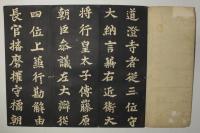 道澄寺者從三位守
大納言兼右近衛大
將行皇太子傅藤原
朝臣叅議左大辨從
四位上兼行勘解由
長官播磨權守橘朝